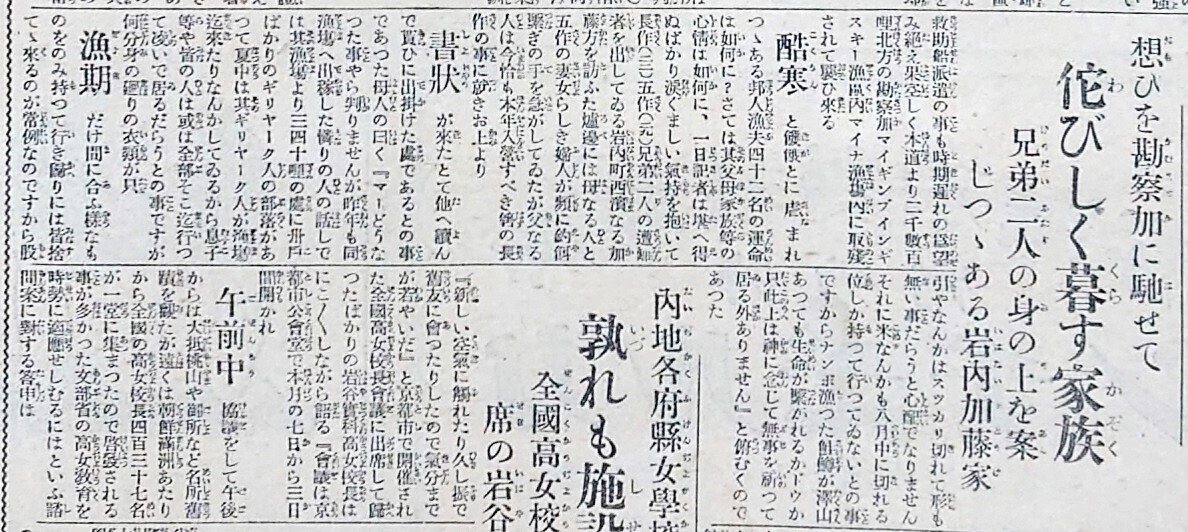 想ひを勘察加に馳せて
佗びしく暮す家族
兄弟二人の身の上を案
じつゝある岩内加藤家
救助船派遣の事も時期遅れの為望
み絶え果空しく本道より二千數百
哩北方の勘察加マイギンブインギ
スキー漁區內マイナ漁場內に取殘
されて襲ひ來る
酷寒 と饑餓とに虐まれ
つゝある邦人漁夫四十二名の運命
は如何に?さては其父母家族等の
心情は如何に、一日記者は堪へ得
ぬばかり淚ぐましい氣持を抱いて
長作(三〇)五作(元)兄弟二人の遭難
者を出してゐる岩內町西濱なる加
藤方を訪ふた爐邊には母なる人と
五作の妻女らしき婦人が頻に釣餌
繋ぎの手を急がしてゐたが父なる
人は今恰も本年入營すべき倅の長
作の事に就きお上より
書狀 が來たとて他へ讀ん
で貰ひに出掛けた處であるとの事
であつた母人の曰く『マーどうな
つた事やら判りませんが昨年も同
漁場へ出稼した隣りの人の話しで
は其漁場より三四十哩の處に卅戶
ばかりのギリヤーク人の部落があ
つて夏中は其ギリヤーク人が漁場
迄來たりなんかしてゐるから息子
等や皆の人は或は全部そこ迄行つ
て凌いで居るだらうとの事ですが
何分身の廻りの衣類が只
漁期 だけ間に合ふ樣なも
のをのみ持つて行き歸りには皆捨
てゝ來るのが常例なのですから股
引やなんかはスツカリ切れて形も
無い事だらうと心配でなりません
それに米なんかも八月中に切れる
位しか持つて行つてゐないとの事
ですからナンボ漁つた鮭鱒が澤山
あつても生命が繋がれるかドウか
只此上は神に念じて無事を祈つて
居る外ありません』と俯むくので
あつた
內地各府縣女學校
孰れも施設
全國高女校
席の岩谷
『新しい空氣に觸れたり久し振で
舊友に會つたりしたので氣分まで
が若やいだ』と京都市で開催され
た全國高女校長會議に出席して歸
つたばかりの岩谷實科高女校長は
にこ〳〵しながら語る『會議は京
都市公會堂で本月の七日から三日
間開かれ
午前中 協議をして午後
からは大抵桃山や御所など名所舊
蹟を觀たが遠くは朝鮮滿洲あたり
から全國の高女校長四百三十七名
が一堂に集まつたので啓發される
事が多かつた文部省の高女敎育を
時勢に適應せしむるにはといふ諮
問案に對する答申は